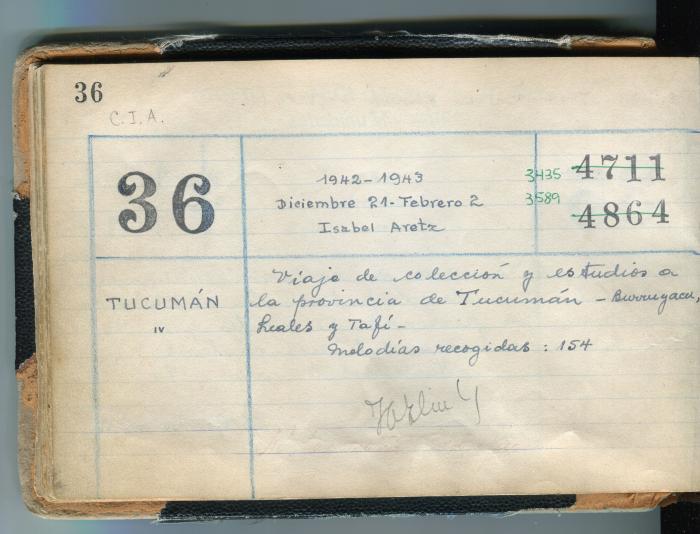 36
C.I.A.
36
1942-1943
Diciembre 21-Febrero 2
Isabel Aretz
3435 4711
3589 4864
TUCUMÁN
IV
Viaje de colección y estudios a
la provincia de Tucumán - Burruyacu,
Leales y Tafí-
Melodías recogidas : 154